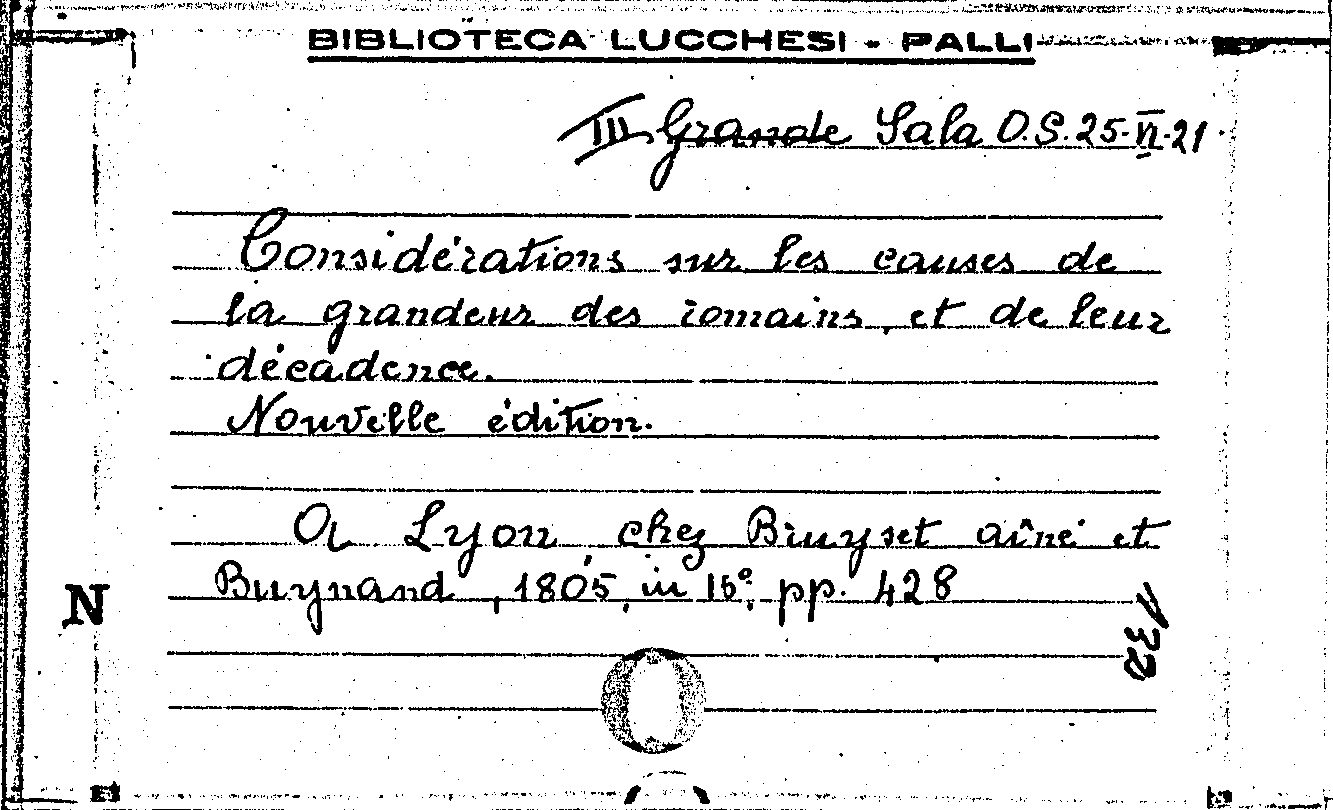 BIBLIOTECA LUCCHESI - PALLI
III Grande Sala O.S. 25-VI-21
Considérations sur les causes de
la grandeur des romains, et de leur
décadence.
Nouvelle édition.
A Lyon, chez Bruyset aîné et
Buynand, 1805, in 16°, pp. 428
N
132